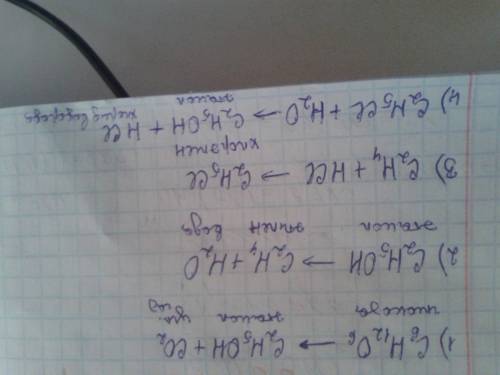 1) C₆H₁₂O₆ → C₂H₅OH + CO₂
глюкоза этанол угл. газ
2) C₂H₅OH → C₂H₄ + H₂O
этанол этилен вода
3) C₂H₄ + HCl → C₂H₅Cl
хлорэтан
4) C₂H₅Cl + H₂O → C₂H₅OH + HCl
этанол хлорид водорода